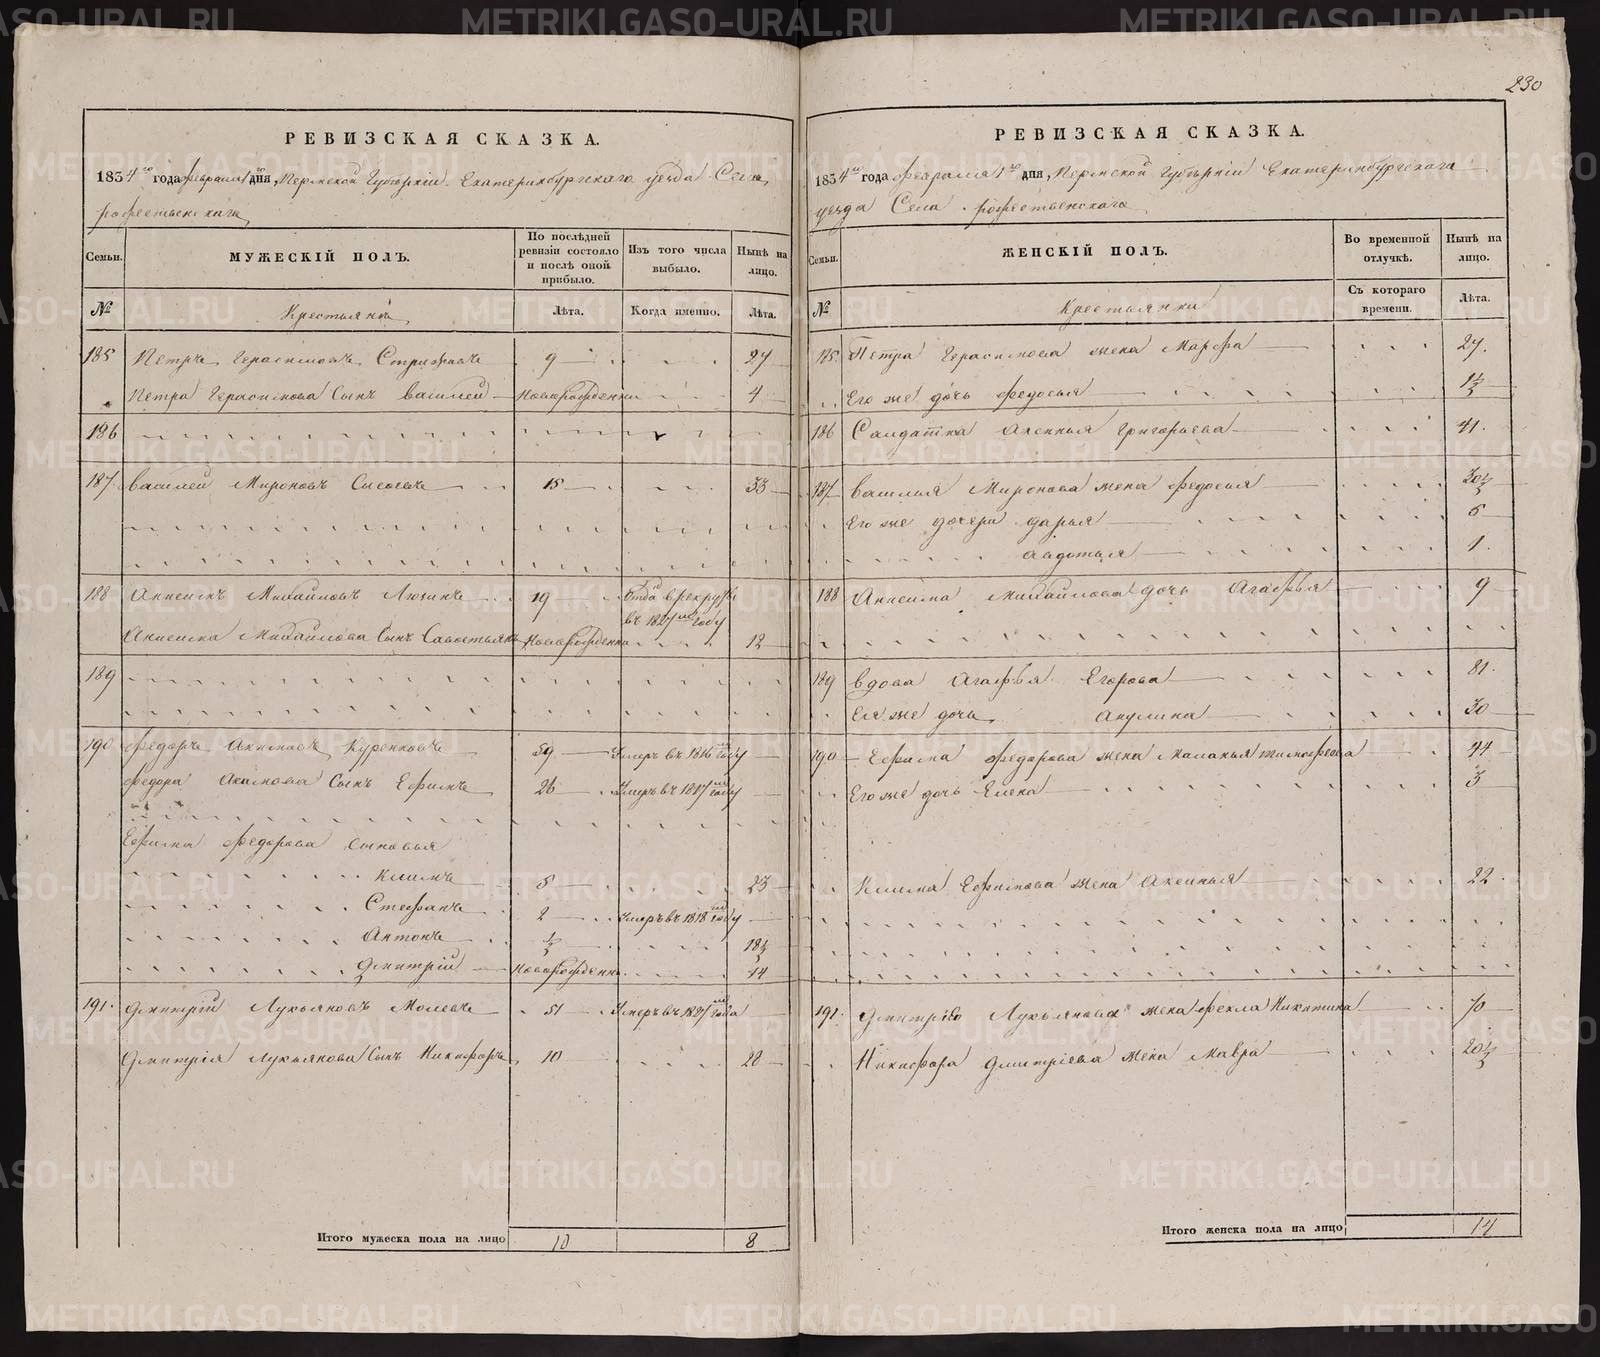 230
РЕВИЗСКАЯ СКАЗКА.
1834го года февраля 1го дня, Пермской Губернiи Екатеринбургскаго уезда Села
рожественскаго
Семьи.
МУЖЕСКIЙ ПОЛЪ.
По послѣдней ревизiи состояло и послѣ оной прибыло.
Изъ того числа выбыло.
Нынѣ на лицо.
№
Крестьяне
Лѣта.
Когда именно.
Лѣта.
185 Петръ Герасимовъ Стрижевъ 9 27
Петра Герасимова Сынъ Василей Новорожденны 4
186
187 Василей Мироновъ Сысоевъ 15 33
188 Анисимъ Михайловъ Люзинъ 19 Отдан в рекруты
въ 1827м году
Анисима Михайлова Сынъ Савостьянъ Новорожденны 12
189
190 Федоръ Акимовъ Куренковъ 59 Умеръ въ 1816м году
Федора Акимова Сынъ Ефимъ 26 Умеръ въ 1827м году
Ефима Федорова сыновья
Климъ 5 23
Стефанъ 2 Умеръ въ 1818м году
Антонъ ½ 18½
Дмитрiй Новорожденны 14
191. Дмитрiй Лукьяновъ Молевъ 51 Умеръ въ 1827м года
Дмитрiя Лукьянова Сынъ Никифоръ 10 28
Итого мужеска пола на лицо 10 8
РЕВИЗСКАЯ СКАЗКА.
1834го года февраля 1го дня, Пермской Губернiи Екатеринбургскаго
уезда Села рожественскаго
Семьи.
ЖЕНСКIЙ ПОЛЪ.
Во временной отлучкѣ.
Нынѣ на лицо.
№
Крестьянки
Съ котораго времени.
Лѣта.
185. Петра Герасимова жена Марфа 27.
Его же дочь Федосья 1½
186 Салдатка Аксинья Григорьева 41.
187 Василья Миронова жена Федосья 30½
Его же дочери Дарья 5
Авдотья 1.
188 Анисима Михайлова дочь Агафья 9
189 Вдова Агафья Егорова 81.
Ея же дочь Акулина 30
190 Ефима Федорова жена Маланья Тимофеева 44
Его же дочь Елена 3
Клима Ефимова жена Аксинья 22
191. Дмитрiво Лукьянова жена Фекла Никитина 70
Никифора Дмитрiева жена Мавра 20½
Итого женска пола на лицо 14